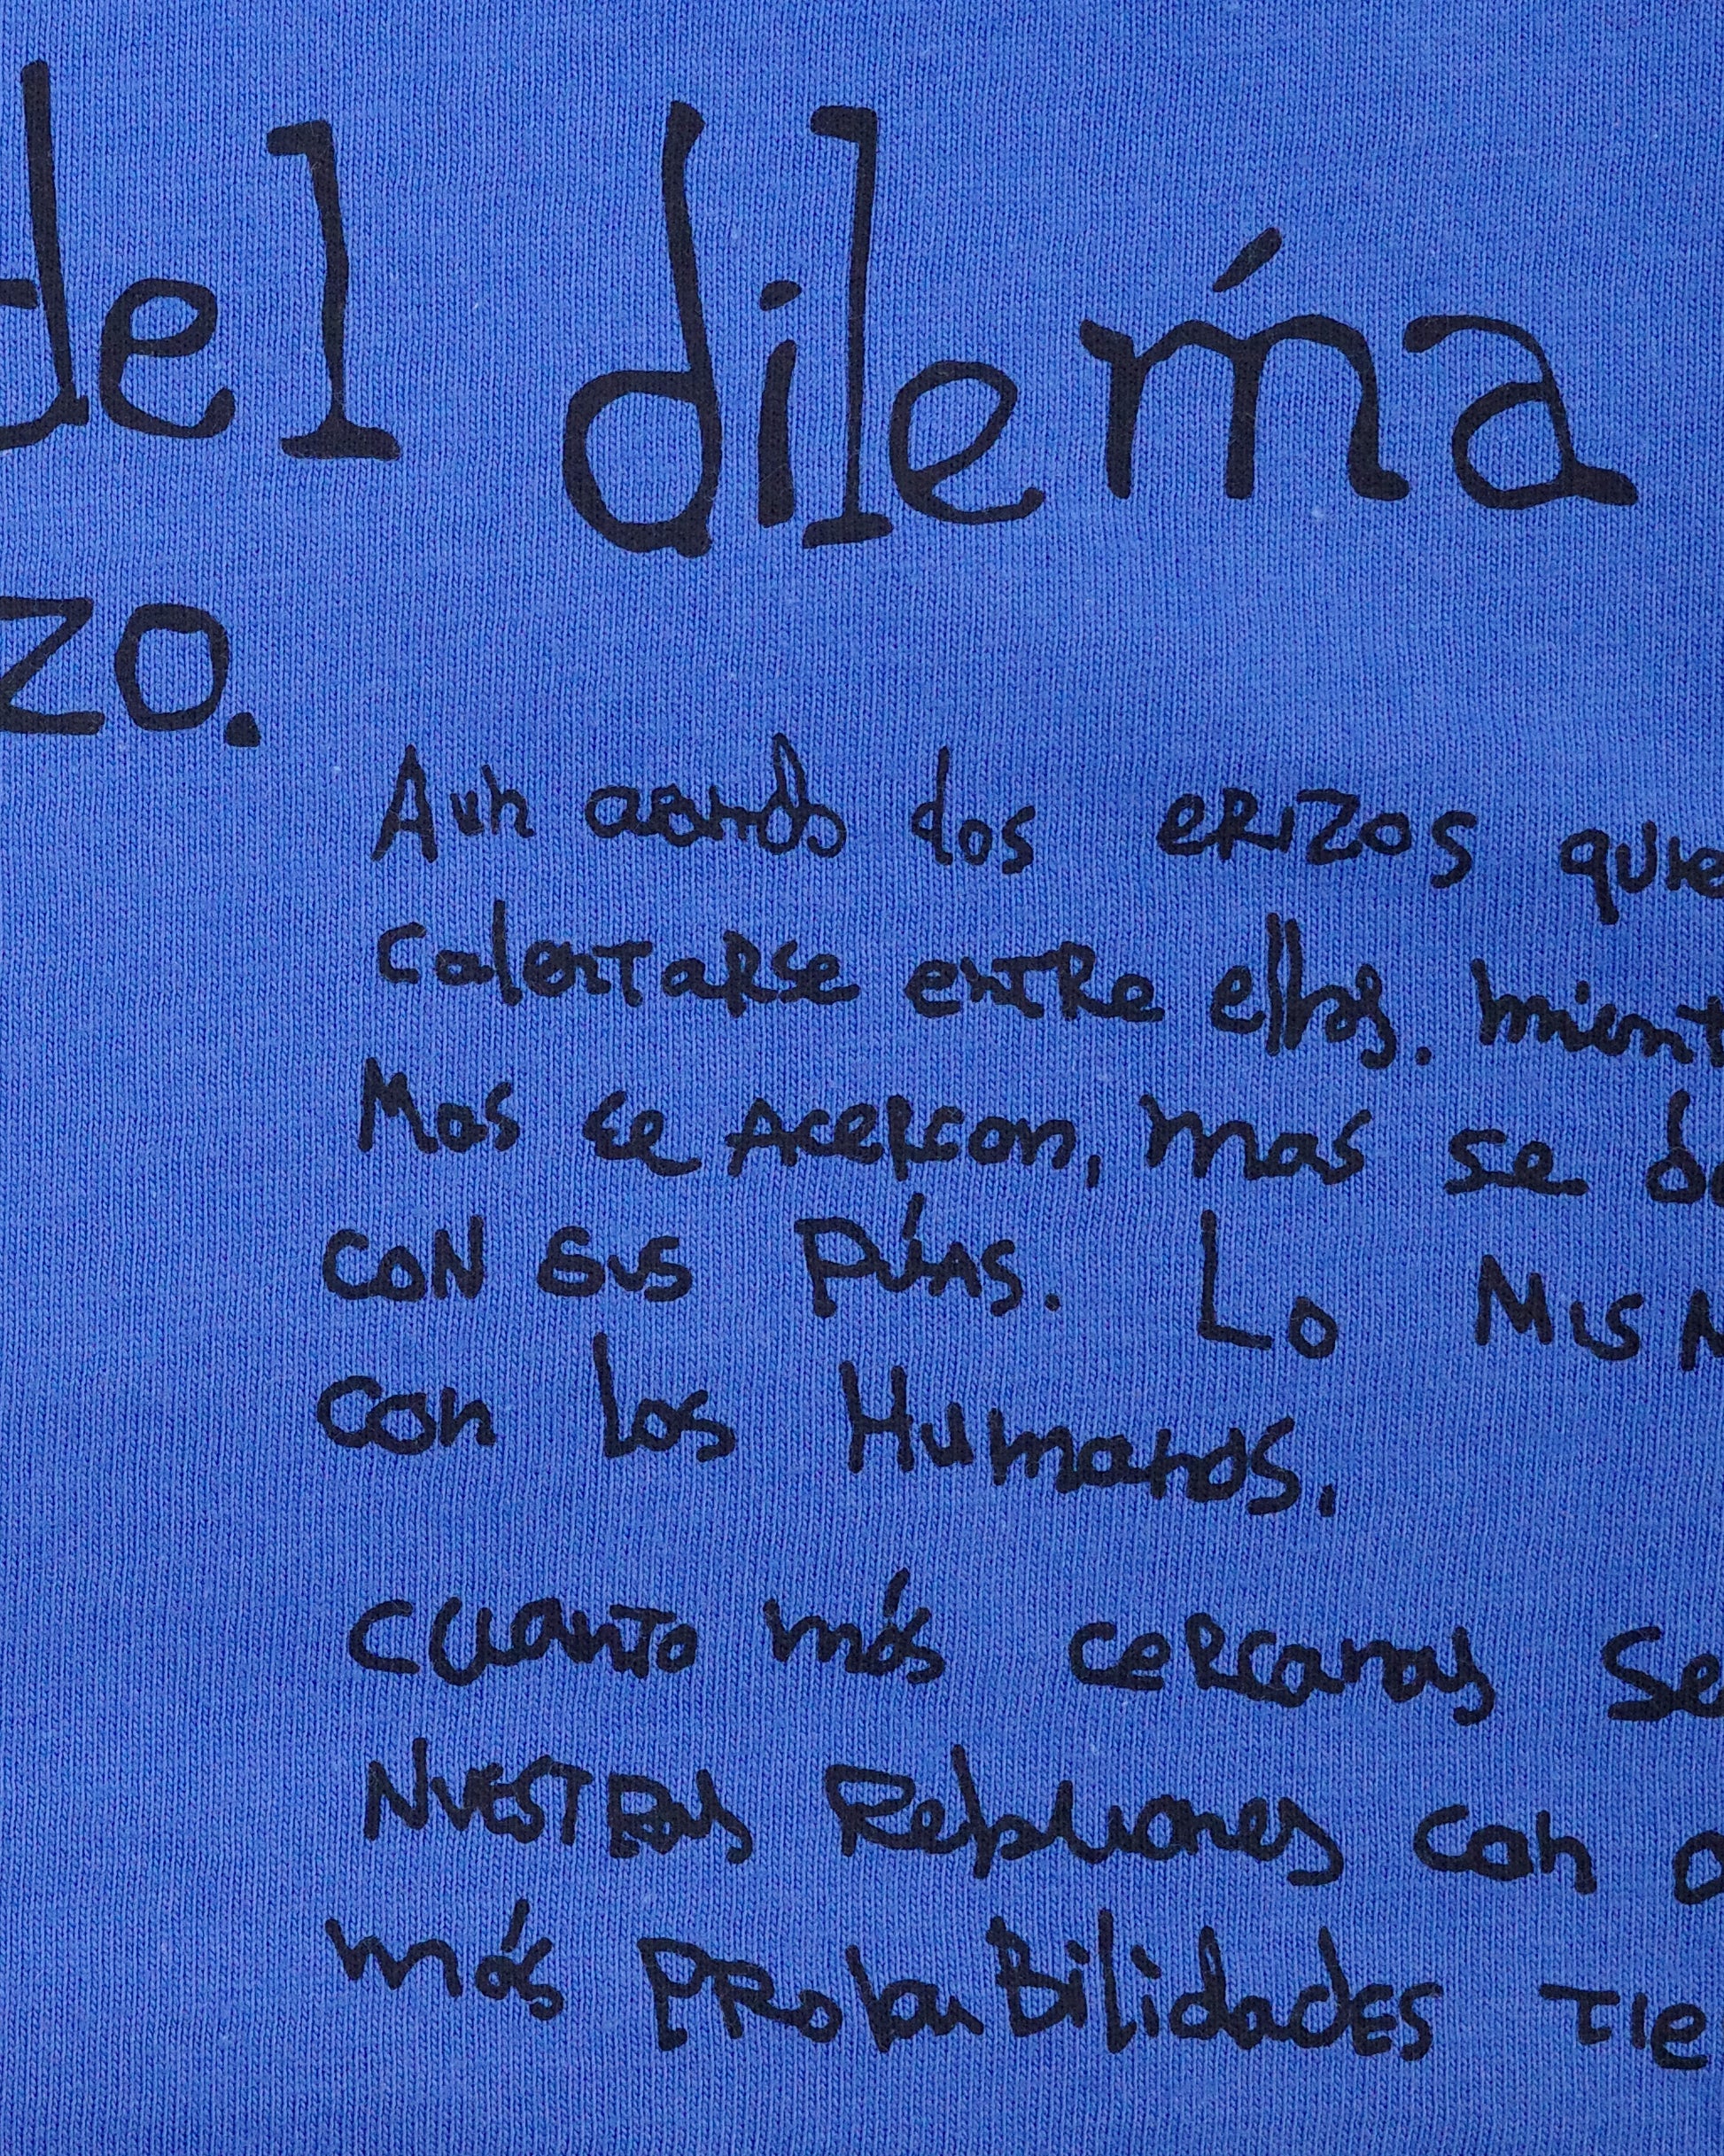 del dilema
zo.
Aun cuando dos eRiZos quie
CalentaRse entRe ellos. mient
Mas se AceRcan, mas se
CON SUS PÚAS. Lo MISM
con los Humanos.
cuanto más ceRcanas se
NUESTRas Relaciones con o
más PRobaBilidadES TIe